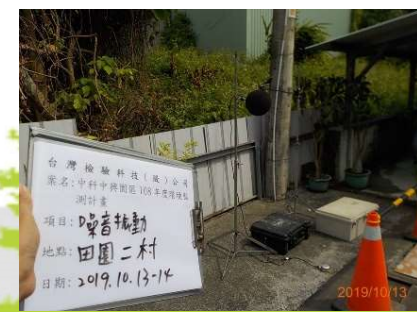 台灣檢驗科技(股)公司
案名:中科中興園區108年度環境監
測計畫
項目:噪音振動
地點:田園二村
日期:2019.10.13-14
2019/10/13